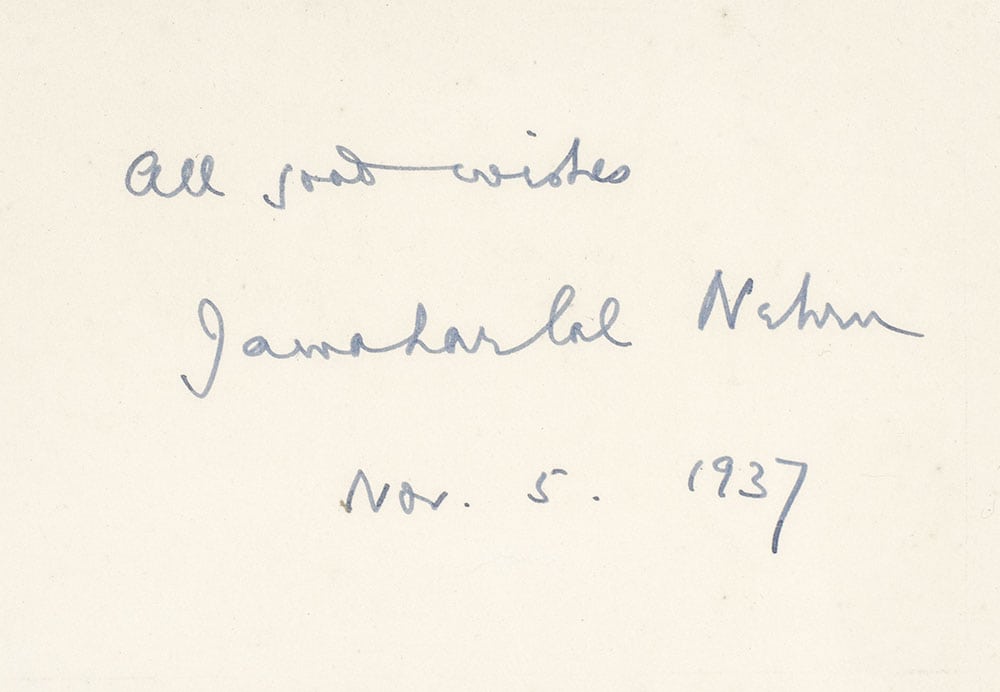 All good wishes
Jawaharlal Nehru
Nov. 5. 1937